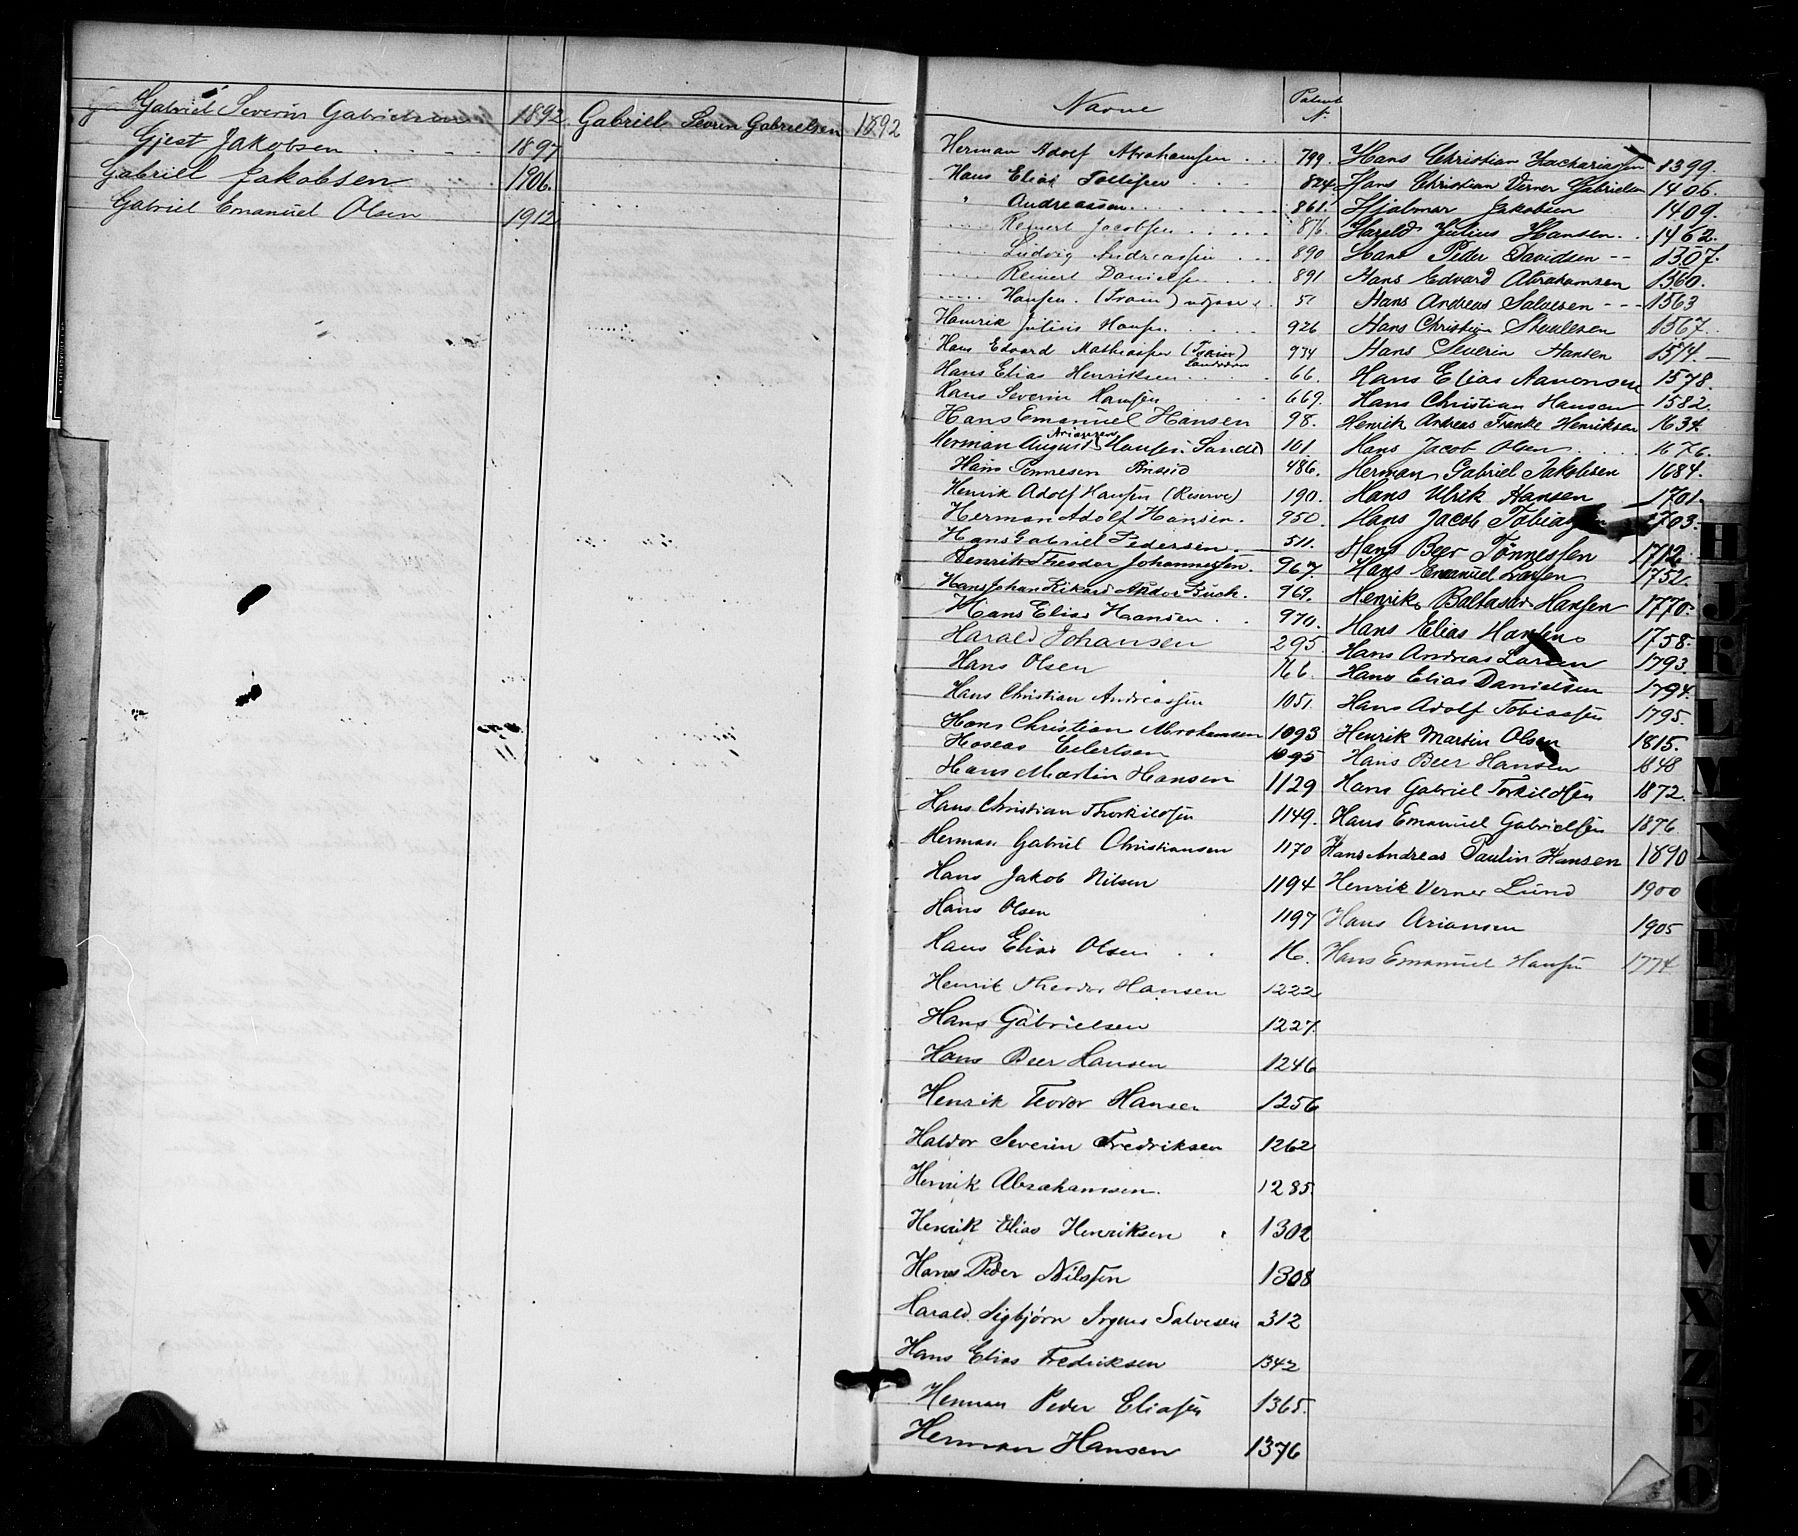 Gabriel Severin Gabrielsen 1892
Gjest Jakobsen 1897
Gabriell Jakobsen 1906.
Gabriel Emanuel Olsen 1912
Gabriell Sevrin Gabrielsen 1892
Navne
Patent N.
Herman Adolf Abrahamsen 799.
Hans Elias Tollefsen 824.
" Andreassen 861.
Reinert Jacobsen 876
Ludvig Andreassen 890
Reinert Danielsen 891
Hansen. (Train) 51
Henrik Julius Hansen 926
Hans Edvard Mathiassen (Train) 934
Hans Elias Henriksen 66.
Hans Severin Hansen 669.
Hans Emanuel Hansen 98.
Herman August Hansen. Sande 101.
Ariansen
Hans Tønnesen 486.
Henrik Adolf Hansen (Reserve) 190.
Herman Adolf Hansen. 950.
Hans Gabriell Pedersen 511.
Henrik Theodor Johannessen. 967.
Hans Johan Rikard Andor Buch. 969.
Hans Elias Haansen 970.
Harald Johansen 295.
Hans Olsen 166.
Hans Christian Andreassen 1051.
Hans Christian Abrahamsen 1093
Hoseas Eilertsen 1095
Hans Martin Hansen 1129
Hans Christian Thorkildsen 1149.
Herman Gabriel Christiansen 1170
Hans Jakob Nilsen 1194
Hans Olsen 1197
Hans Elias Olsen 16.
Henrik Theodor Hansen 1222
Hans Gabrielsen 1227.
Hans Beer Hansen 1246
Henrik Teodor Hansen 1256
Haldor Severin Fredriksen 1262
Henrik Abrahamsen. 1285.
Henrik Elias Henriksen 1302
Hans Peder Nilssen 1308
Harald Sigbjørn Trygves Salvesen 312
Hans Elias Fredriksen 1342
Herman Peder Eliasen 1365.
Herman Hansen 1376
Hans Christian Zachariassen 1399.
Hans Christian Verner Gabrielsen 1406.
Hjalmar Jakobsen 1409.
Harald Julius Hansen 1462.
Hans Peder Davidsen -- 1507.
Hans Edvard Abrahamsen 1560.
Hans Andreas Salvesen --- 1563
Hans Christian 1567.
Hans Severin Hansen 1574.
Hans Elias Aanonsen 1578.
Hans Christian Hansen 1582.
Henrik Andreas Franke Henriksen 1634.
Hans Jacob Olsen 1676.
Herman Gabriel Jakobsen 1684.
Hans Ulrik Hansen 1701.
Hans Jacob Tobiassen 1703.
Hans Beer Tønnessen 1712.
Hans Emanuel Larsen 1752.
Henrik Baltasar Hansen 1770.
Hans Elias Hansen 1758.
Hans Andreas Larsen 1793
Hans Elias Danielsen 1794.
Hans Adolf Tobiassen 1795.
Henrik Martin Olsen 1815.
Hans Beer Hansen 1848
Hans Gabriel Torkildsen 1872.
Hans Emanuel Gabrielsen 1876
Hans Andreas Paulin Hansen 1890
Henrik Verner Lund 1900
Hans Ariansen 1905
Hans Emanuel Hansen 1774.
H
J
K
L
M
N
O
P
S
T
U
V
X
Z
Æ
Ø